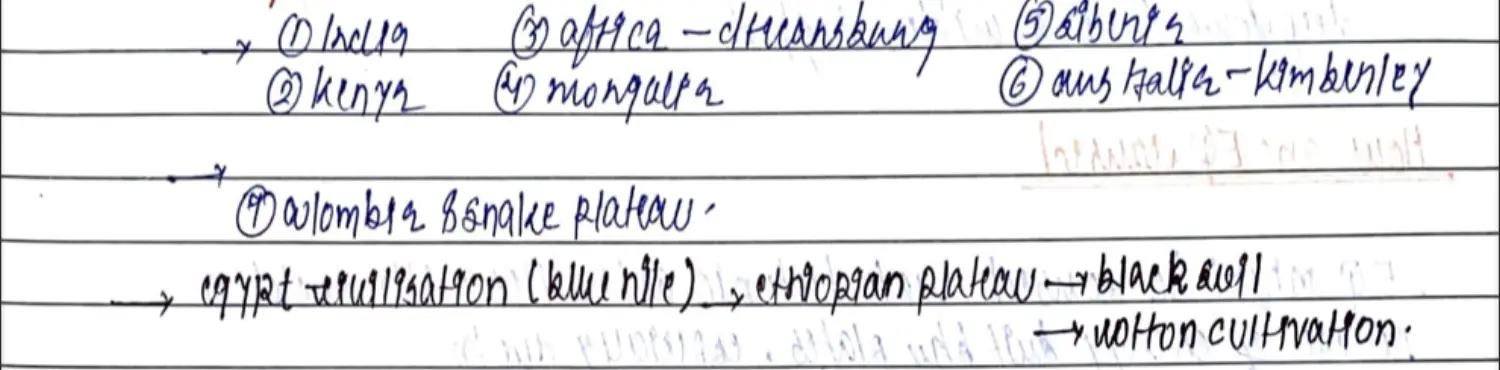 → ① India ③ africa - drakansburg ⑤ siberia
② kenya ④ mongolia ⑥ australia - kimberley
→
⑦ colombia & snake plateau.
→ egypt civilisation (blue nile) → ethiopian plateau → black soil
→ cotton cultivation.